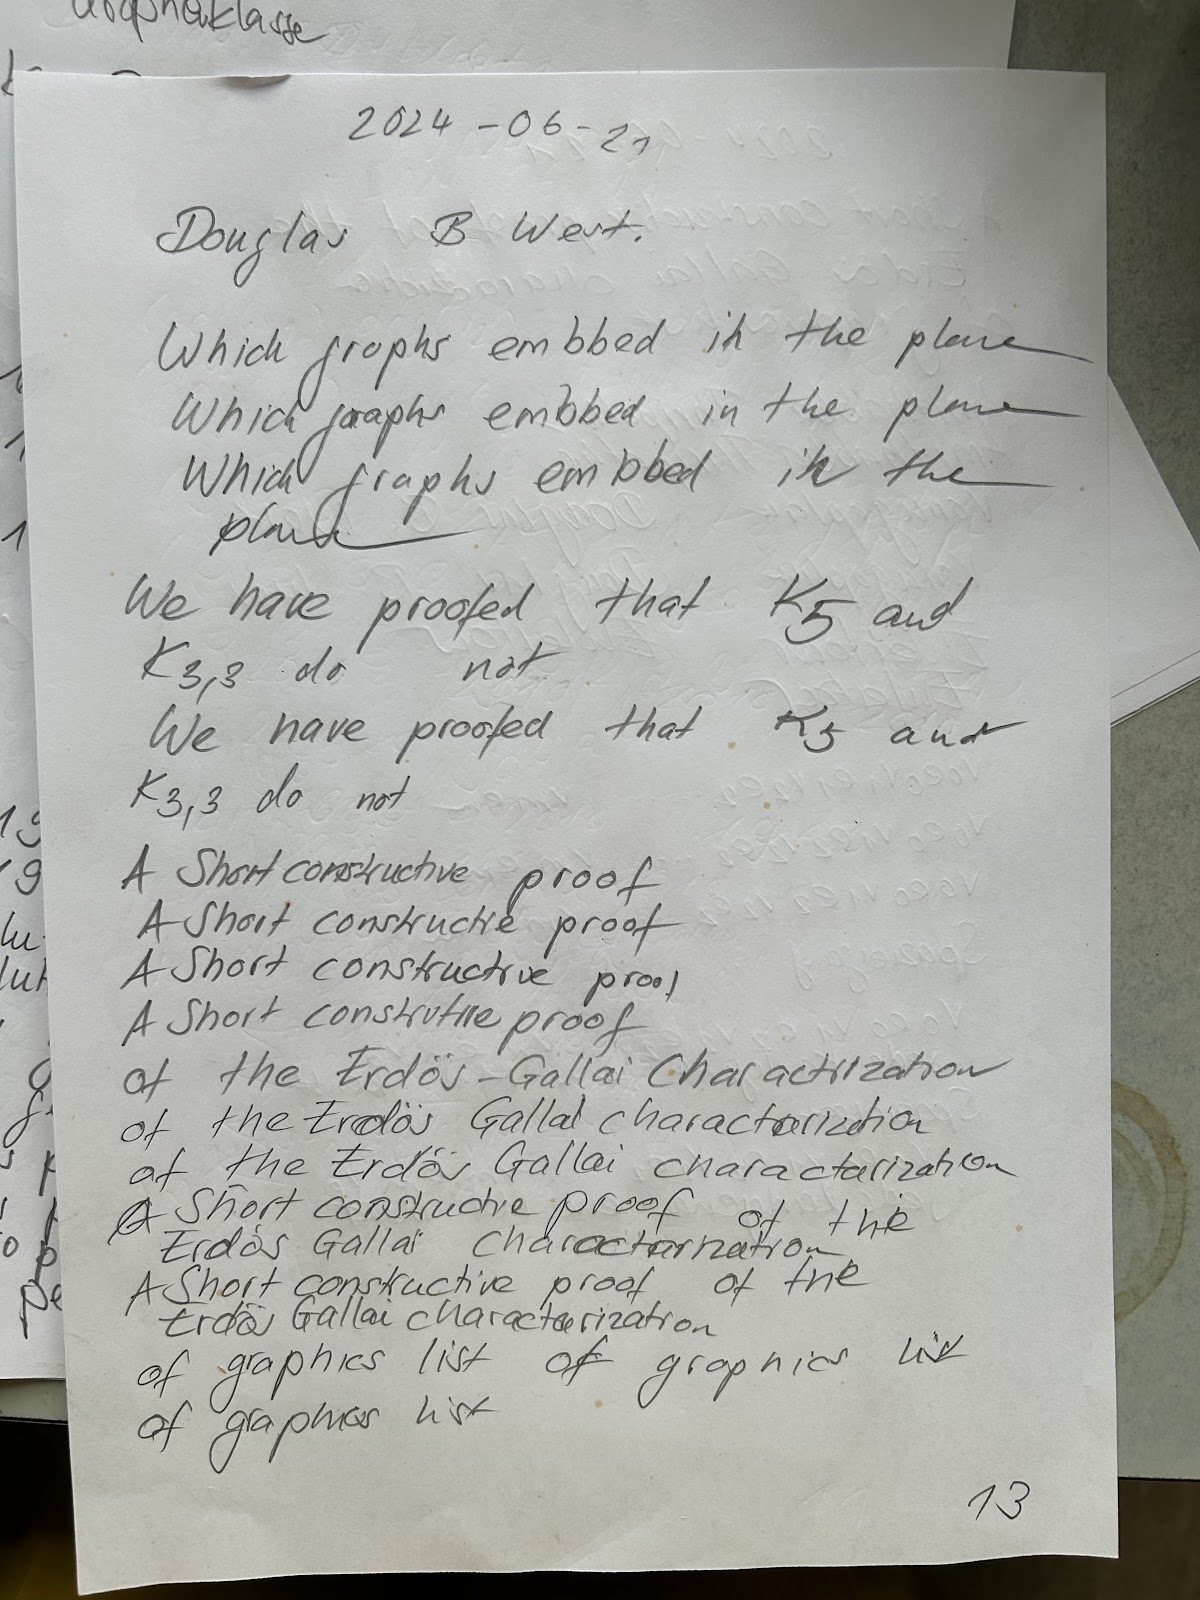 Graphenklasse
2024-06-21
Douglas B West.
Which graphs embbed in the plane
Which graphs embbed in the plane
Which graphs embbed in the
plane
We have proofed that K5 and
K3,3 do not
We have proofed that K5 and
K3,3 do not
A Short constructive proof
A Short constructie proof
A Short constructive proof
A Short construtive proof
of the Erdös-Gallai Charactrization
of the Erdös Gallai characterization
of the Erdös Gallai characterization
A Short constructive proof of the
Erdös Gallai characterization
A Short constructive proof of the
Erdös Gallai characterization
of graphics list of graphics list
of graphics list
13